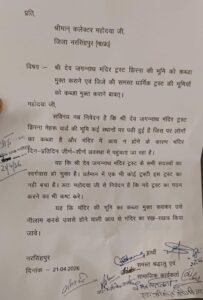 प्रति,
श्रीमान् कलेक्टर महोदया जी,
जिला नरसिंहपुर (म0प्र0)
विषय :- श्री देव जगन्नाथ मंदिर ट्रस्ट झिरना की भूमि को कब्जा
मुक्त कराने एवं जिले की समस्त धार्मिक ट्रस्ट की भूमियों
को कब्जा मुक्त कराने बाबत्।
महोदया जी,
सविनय नम्र निवेदन है कि श्री देव जगन्नाथ मंदिर ट्रस्ट
झिरना नेहरू वार्ड की भूमि कई स्थानों पर पड़ी हुई है जिस पर लोगों
का कब्जा है और मंदिर में आय न होने के कारण मंदिर
दिन-प्रतिदिन जीर्ण-शीर्ण अवस्था में पहुंचता जा रहा है।
यह कि श्री देव जगन्नाथ मंदिर ट्रस्ट के सभी सदस्यों का
स्वर्गवास हो चुका है। वर्तमान में एक भी कोई ट्रस्टी इस ट्रस्ट का
नहीं बचा है। अतः महोदया जी से निवेदन है कि नये ट्रस्ट का गठन
करने का भी कष्ट करें।
यह कि मंदिर की भूमि का कब्जा मुक्त कराकर उसे
नीलाम कराके उससे होने वाली आय से मंदिर का रख-रखाव किया
जावे।
नरसिंहपुर
दिनांक - 21.04.2026
प्रार्थी
समस्त श्रद्धालु एवं
सामाजिक कार्यकर्ता